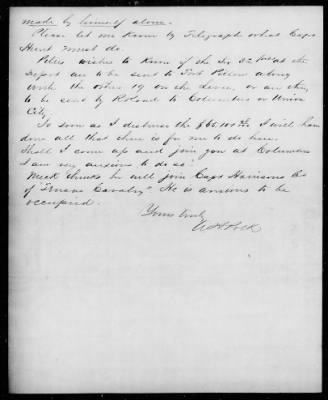 made by himself alone.
Please let me know by Telegraph what Capt
Hunt must do.
Peters wishes to know if the Six 32 pdrs at the
Depot are to be sent to Fort Pillow along
with the other 19 on the Levee, or are they
to be sent by Rl Road to Columbus or Union
City
So soon as I disburse the I will have
done all that there is for me to do here.
Shall I come up and join you at Columbus
I am very anxious to do so.
Meek thinks he will join Capt Harrisons Co
of Cavalry. He is anxious to be
occupied.
Yours truly